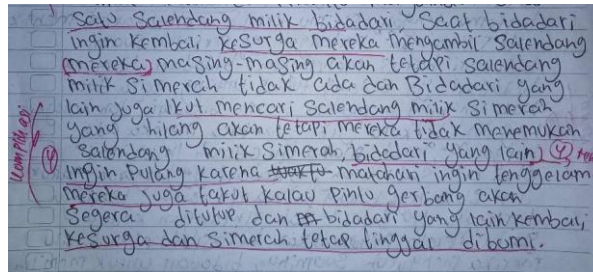 Satu Salendang milik bidadari, Saat bidadari
ingin kembali kesurga mereka mengambil Salendang
(mereka) masing-masing akan tetapi salendang
milik Simerah tidak ada dan Bidadari yang
lain juga ikut mencari Salendang milik Simerah
yang hilang akan tetapi mereka tidak menemukan
Salendang milik Simerah, bidadari yang lain) 4
ingin Pulang karena matahari ingin tenggelam
mereka juga takut kalau pintu gerbang akan
Segera ditutup dan bidadari yang lain kembali
kesurga dan Simerah tetap tinggal dibumi.
Komplikasi
4